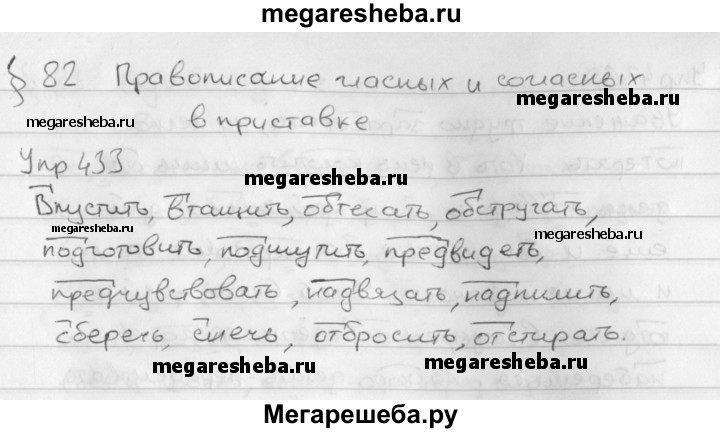 megaresheba.ru
§ 82 Правописание гласных и согласных
megaresheba.ru
megaresheba.ru
в приставке
Упр 433
megaresheba.ru
Впустить, втащить, обтесать, обстругать,
megaresheba.ru
megaresheba.ru
подготовить, подшутить, предвидеть,
предчувствовать, надвязать, надпилить,
сберечь, смечь, отбросить, отстирать.
megaresheba.ru
megaresheba.ru
Мегарешеба.ру